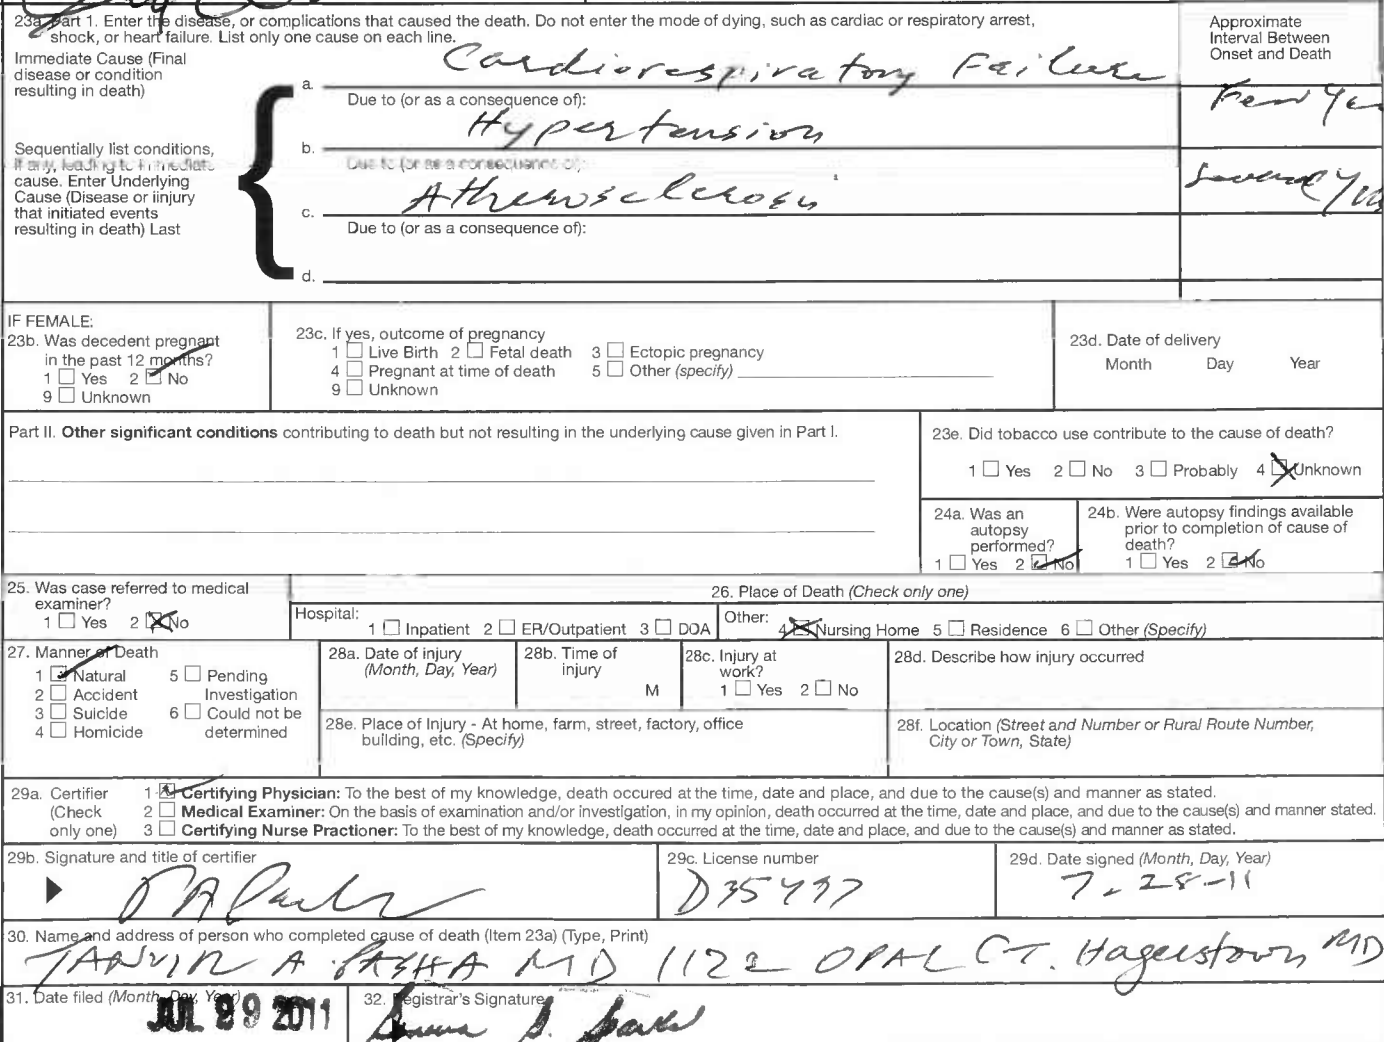 23a. Part 1. Enter the disease, or complications that caused the death. Do not enter the mode of dying, such as cardiac or respiratory arrest,
shock, or heart failure. List only one cause on each line.
Approximate
Interval Between
Onset and Death
Immediate Cause (Final
disease or condition
resulting in death)
a. Cardiorespiratory Failure
Due to (or as a consequence of):
Few
b. Hypertension
Sequentially list conditions,
if any, leading to immediate
cause. Enter Underlying
Cause (Disease or iinjury
that initiated events
resulting in death) Last
Due to (or as a consequence of):
c. Atherosclerosis
Several
Due to (or as a consequence of):
d.
IF FEMALE:
23b. Was decedent pregnant
in the past 12 months?
1 Yes 2 No
9 Unknown
23c. If yes, outcome of pregnancy
1 Live Birth 2 Fetal death 3 Ectopic pregnancy
4 Pregnant at time of death 5 Other (specify)
9 Unknown
23d. Date of delivery
Month Day Year
Part II. Other significant conditions contributing to death but not resulting in the underlying cause given in Part I.
23e. Did tobacco use contribute to the cause of death?
1 Yes 2 No 3 Probably 4 Unknown
24a. Was an
autopsy
performed?
1 Yes 2 No
24b. Were autopsy findings available
prior to completion of cause of
death?
1 Yes 2 No
25. Was case referred to medical
examiner?
1 Yes 2 No
26. Place of Death (Check only one)
Hospital: 1 Inpatient 2 ER/Outpatient 3 DOA
Other: 4 Nursing Home 5 Residence 6 Other (Specify)
27. Manner of Death
1 Natural 5 Pending
2 Accident Investigation
3 Suicide 6 Could not be
4 Homicide determined
28a. Date of injury
(Month, Day, Year)
28b. Time of
injury
M
28c. Injury at
work?
1 Yes 2 No
28d. Describe how injury occurred
28e. Place of Injury - At home, farm, street, factory, office
building, etc. (Specify)
28f. Location (Street and Number or Rural Route Number,
City or Town, State)
29a. Certifier
(Check
only one)
1 Certifying Physician: To the best of my knowledge, death occured at the time, date and place, and due to the cause(s) and manner as stated.
2 Medical Examiner: On the basis of examination and/or investigation, in my opinion, death occurred at the time, date and place, and due to the cause(s) and manner stated.
3 Certifying Nurse Practioner: To the best of my knowledge, death occurred at the time, date and place, and due to the cause(s) and manner as stated.
29b. Signature and title of certifier
29c. License number
D35497
29d. Date signed (Month, Day, Year)
7-28-11
30. Name and address of person who completed cause of death (Item 23a) (Type, Print)
TANVIR A PASHA MD 1122 OPAL CT. Hagerstown MD
31. Date filed (Month, Day, Year)
JUL 29 2011
32. Registrar's Signature